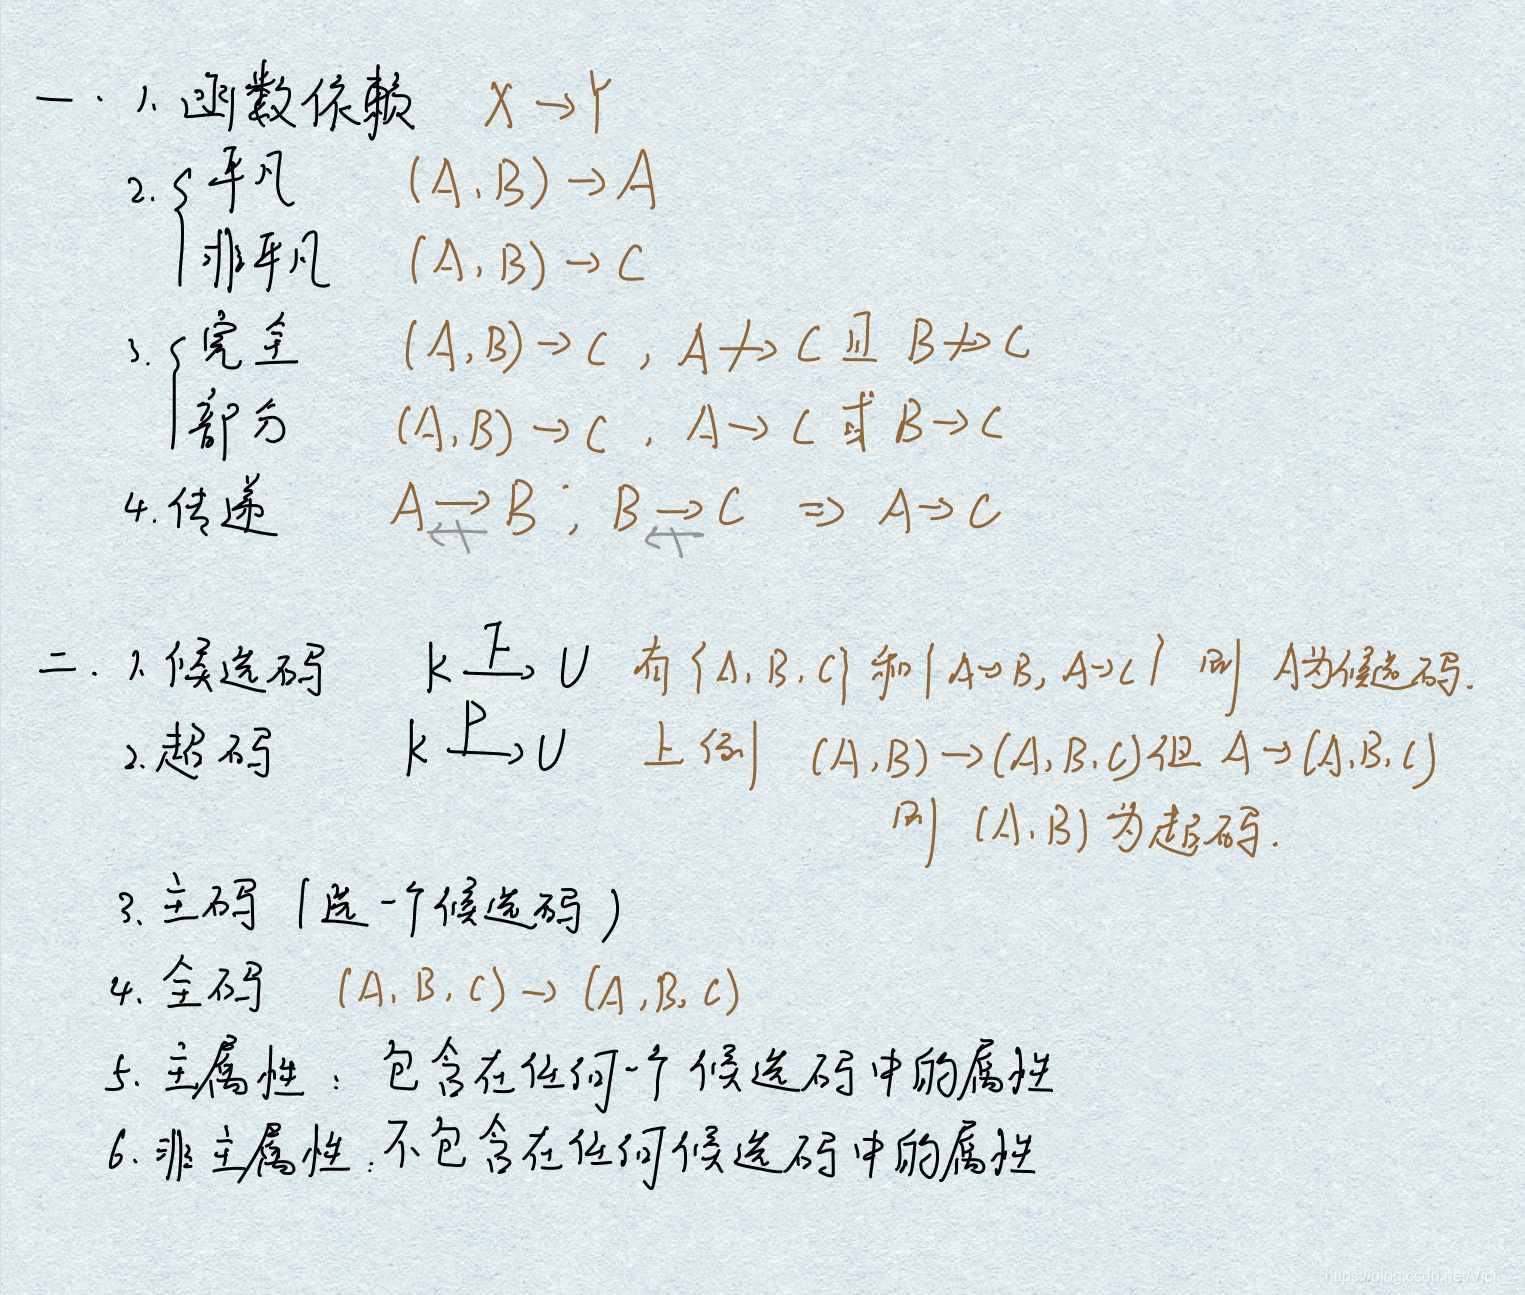 一. 1. 函数依赖 X → Y
2. { 平凡 (A, B) → A
非平凡 (A, B) → C
3. { 完全 (A, B) → C , A ↛ C 且 B ↛ C
部分 (A, B) → C , A → C 或 B → C
4. 传递 A → B ; B → C ⇒ A → C
↚ ↚
二. 1. 候选码 K —F→ U 有{A, B, C}和{A→B, A→C} 则 A为候选码.
2. 超码 K —P→ U 上例 (A, B) → (A, B, C) 但 A → (A, B, C)
则 (A, B) 为超码.
3. 主码 (选一个候选码)
4. 全码 (A, B, C) → (A, B, C)
5. 主属性: 包含在任何一个候选码中的属性
6. 非主属性: 不包含在任何候选码中的属性